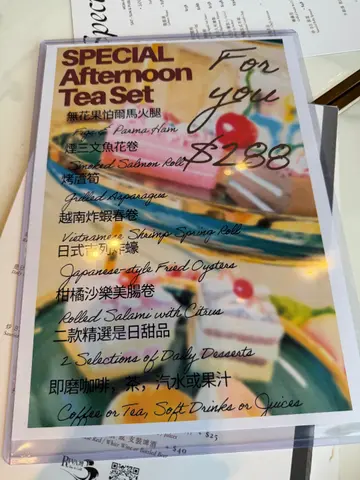 SPECIAL
Afternoon
Tea Set
For
you
$288
無花果怕爾馬火腿
Figs & Parma Ham
煙三文魚花卷
Smoked Salmon Roll
烤蘆筍
Grilled Asparagus
越南炸蝦春卷
Vietnamese Shrimp Spring Roll
日式吉列炸蠔
Japanese-style Fried Oysters
柑橘沙樂美腸卷
Rolled Salami with Citrus
二款精選是日甜品
2 Selections of Daily Desserts
即磨咖啡，茶，汽水或果汁
Coffee or Tea, Soft Drinks or Juices
+ $25
+ $40